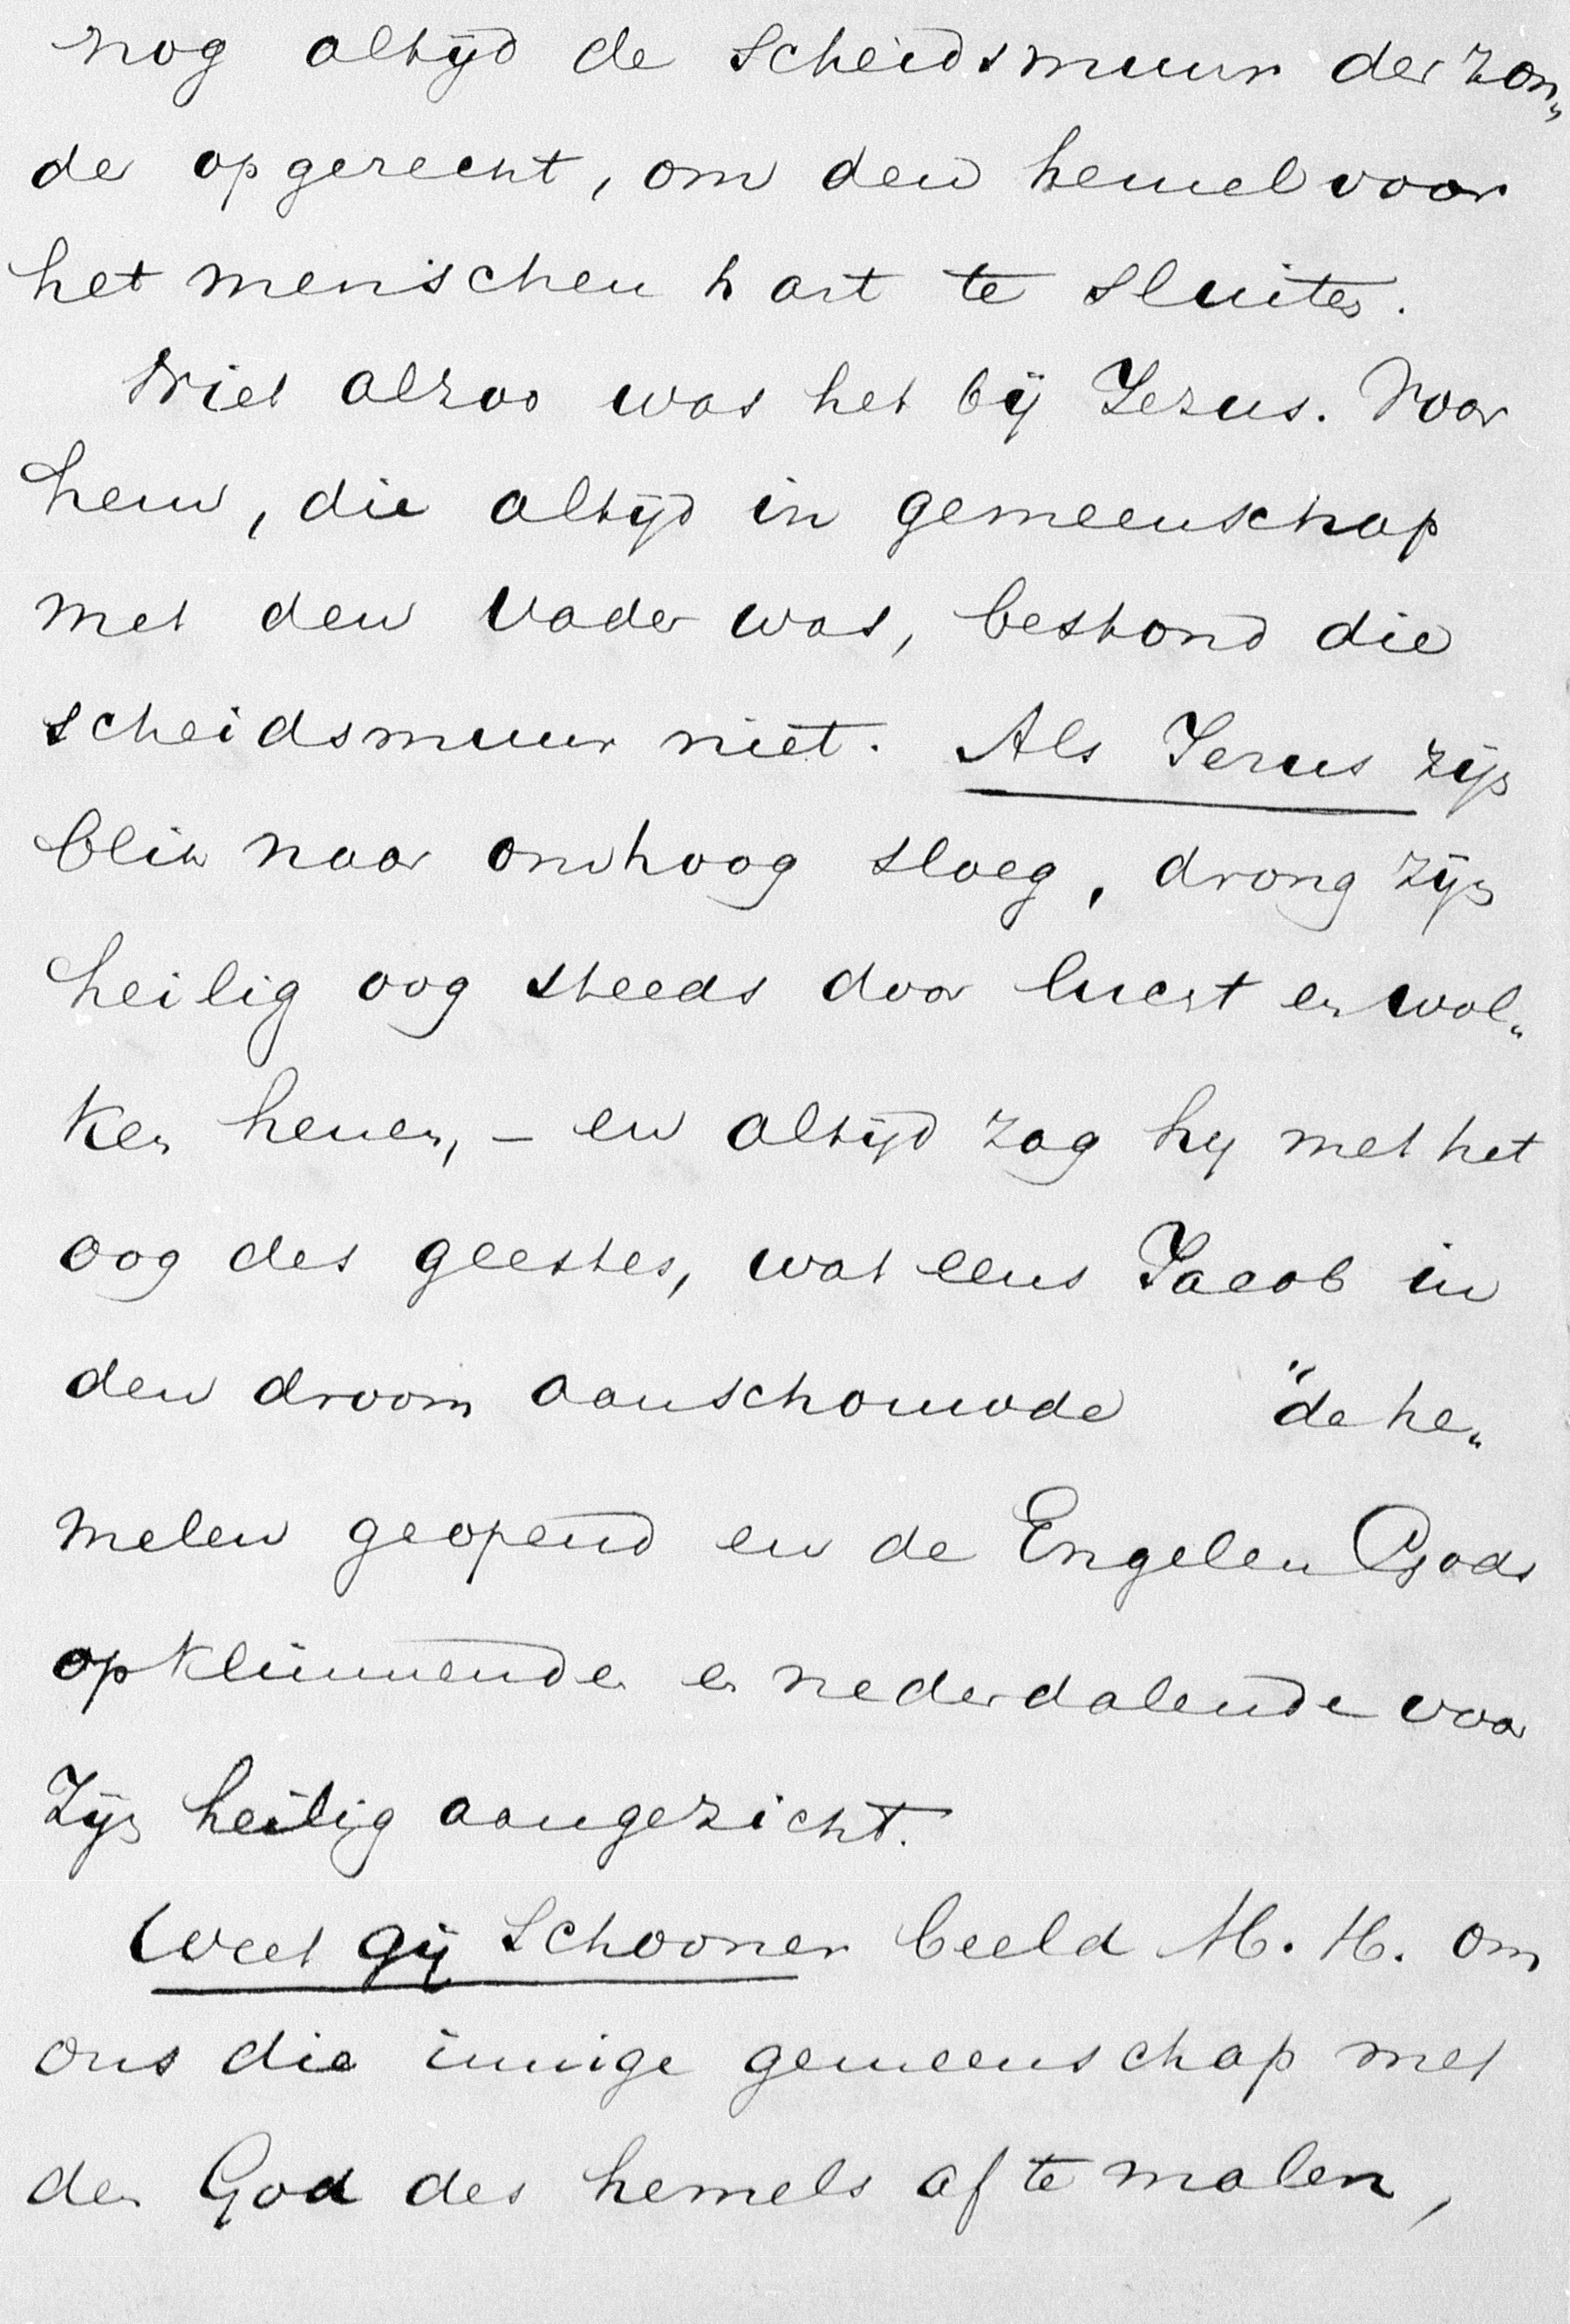 nog altijd de scheidsmuur der zon„
de opgerecht, om den hemel voor
het menschen hart te sluiten.
Niet alzoo was het bij Jezus. Voor
hem, die altijd in gemeenschap
met den Vader was, bestond die
scheidsmuur niet. Als Jezus zijn
blik naar omhoog sloeg, drong zijn
heilig oog steeds door lucht en wol„
ken henen, – en altijd zag hij met het
oog des geestes, wat eens Jacob in
den droom aanschouwde "de he„
melen geopend en de Engelen Gods
opklimmende en nederdalende voor
Zijn heilig aangezicht.
Weet gij schooner beeld M. H. om
ons die innige gemeenschap met
den God des hemels af te malen,